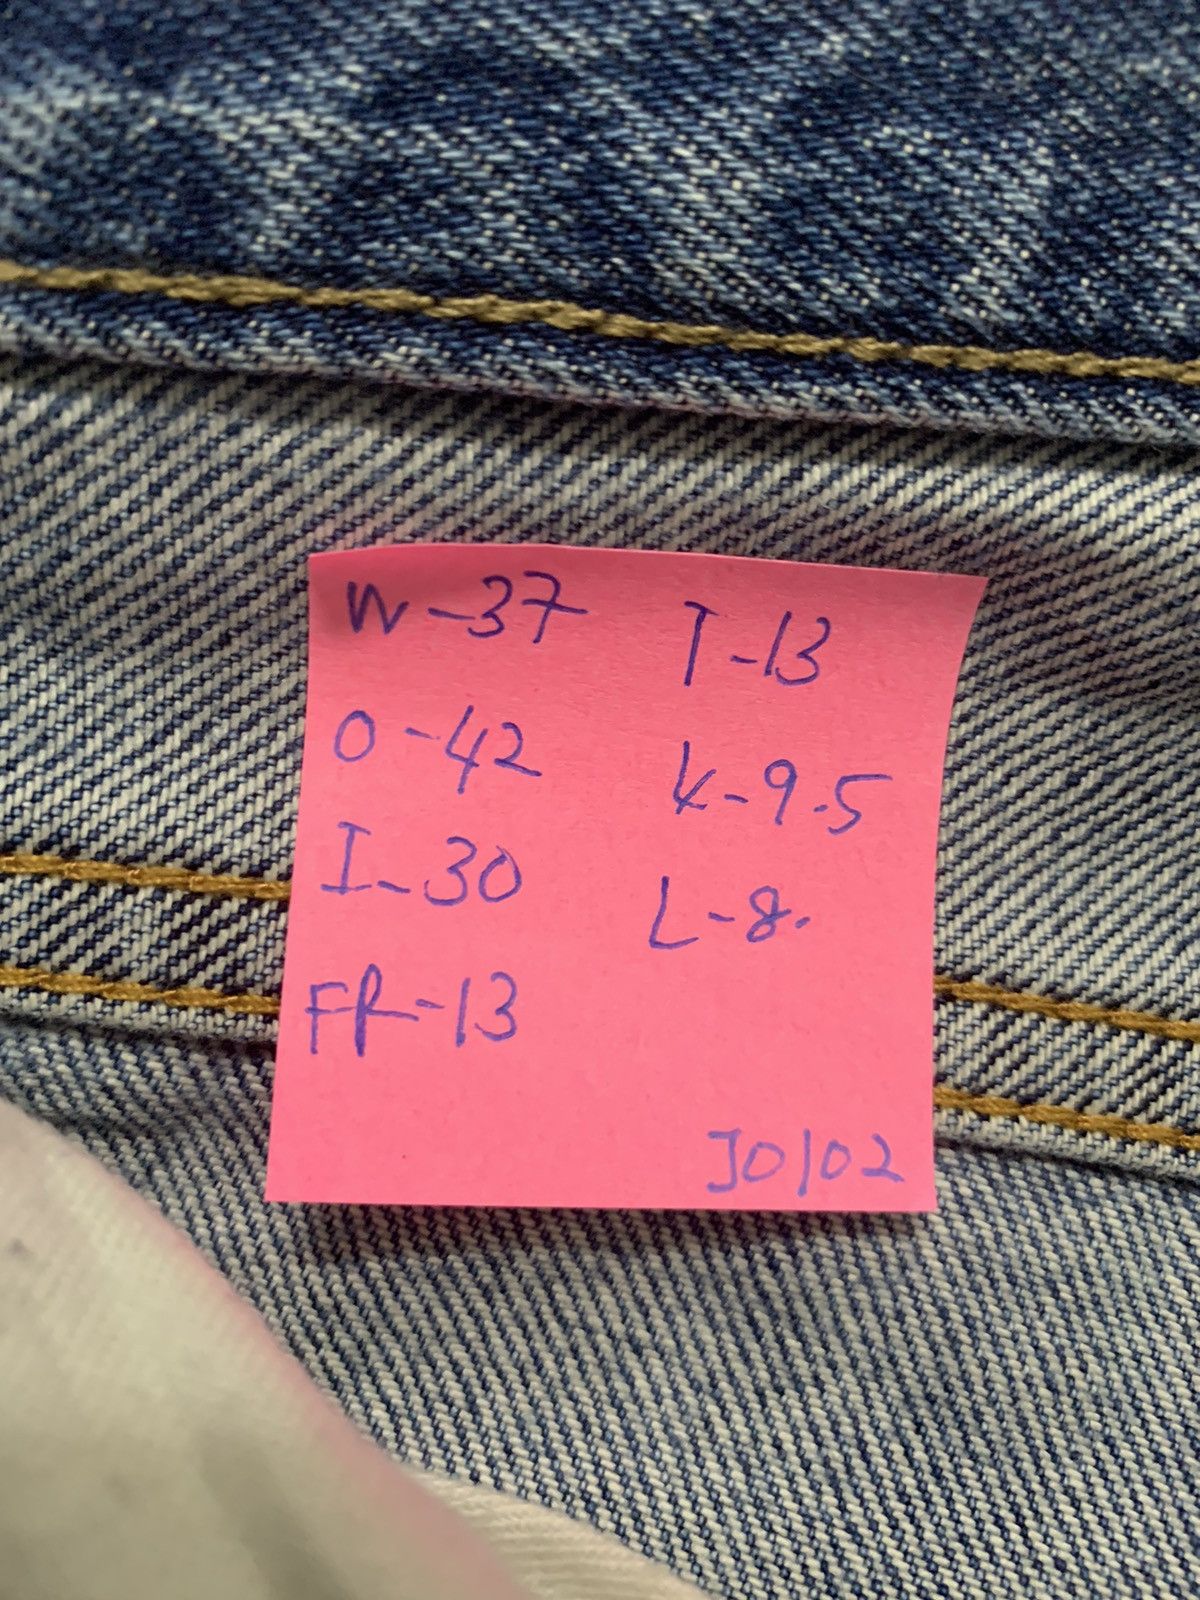 W-37
O-42
I-30
FR-13
T-13
K-9.5
L-8.
J0102